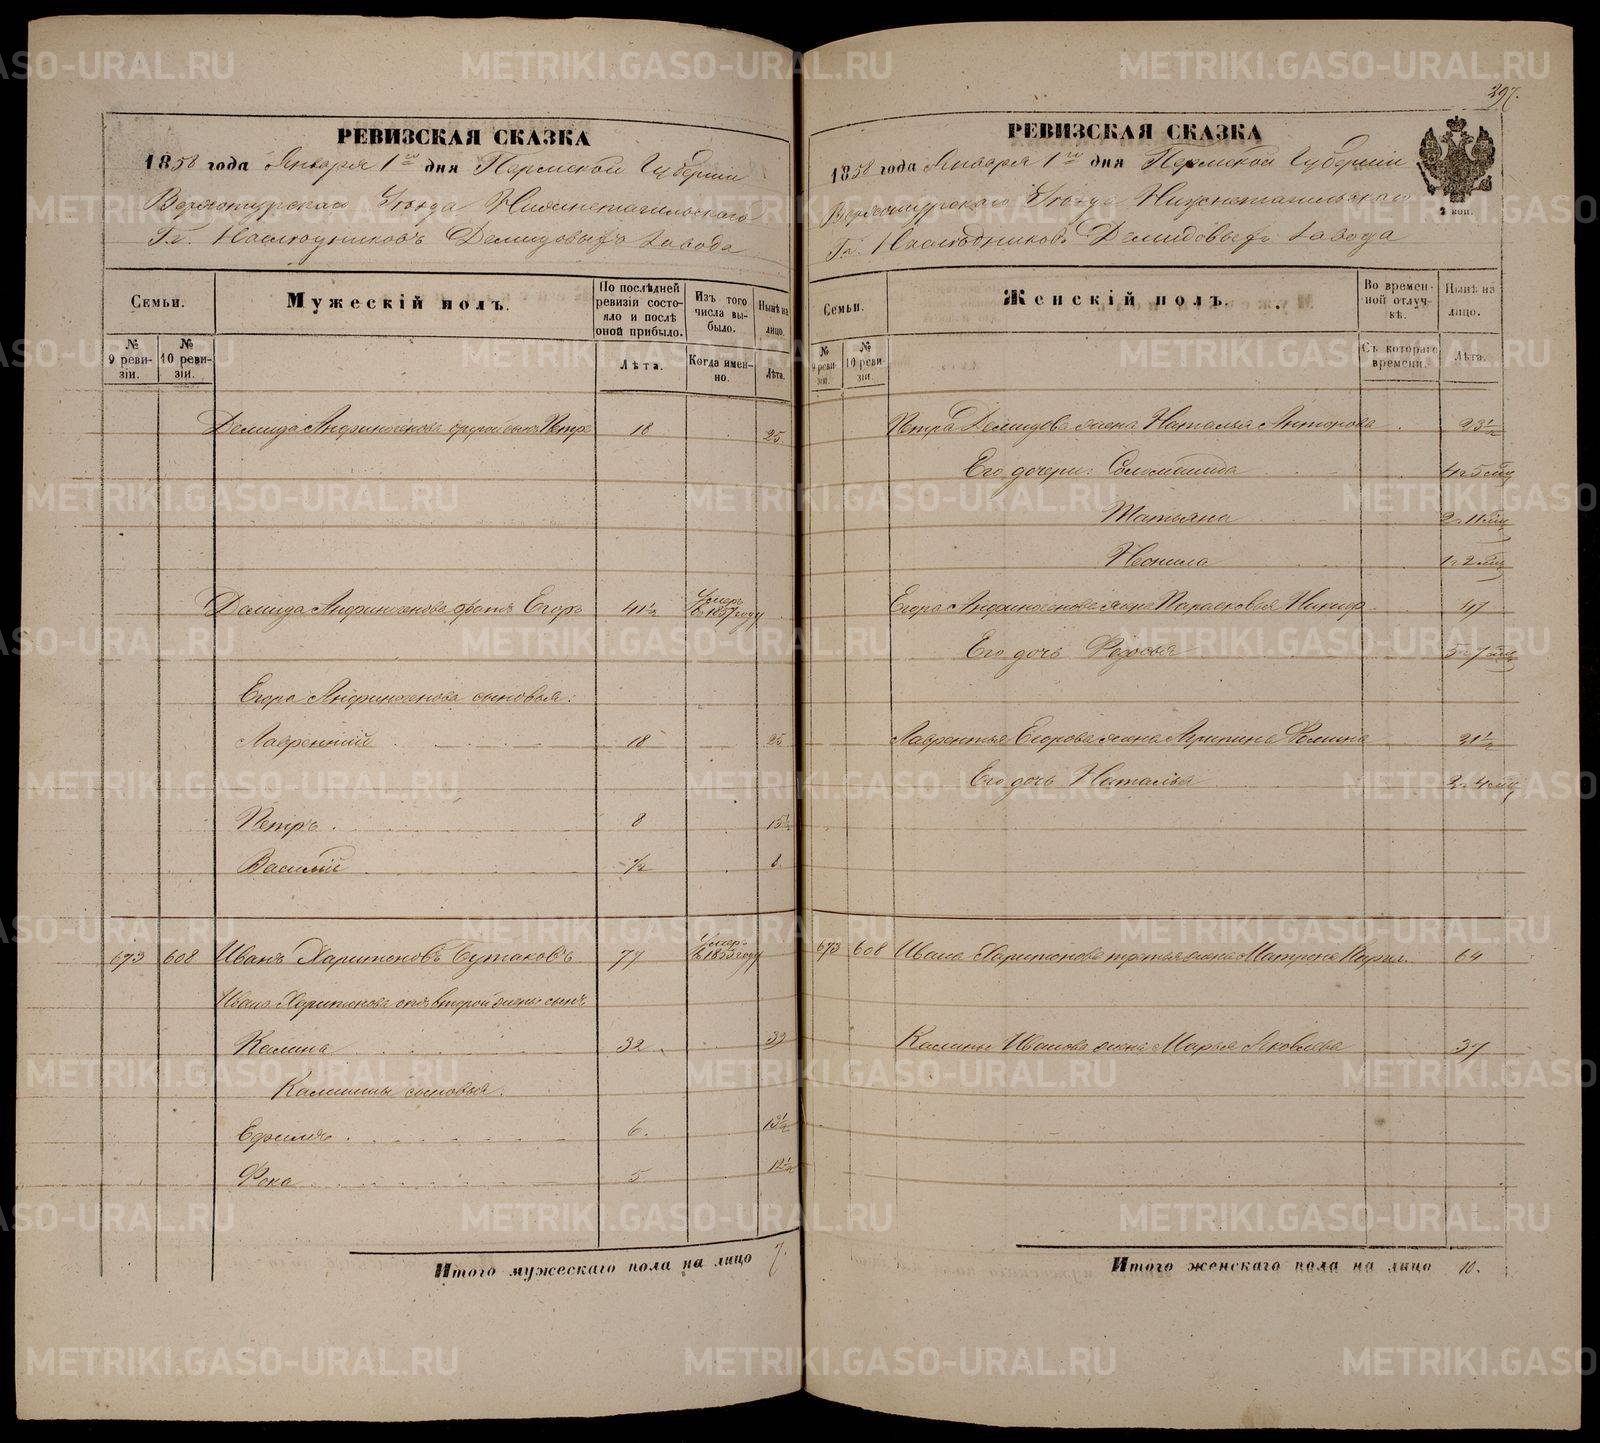 397.
РЕВИЗСКАЯ СКАЗКА
1858 года Января 1го дня Пермской Губернии
Верхотурскаго Уѣзда Нижнетагильскаго
Гг. Наслѣдниковъ Демидовыхъ завода
Семьи.
Мужескій полъ.
По послѣдней ревизіи состояло и послѣ оной прибыло.
Изъ того числа выбыло.
Нынѣ на лицо.
№ 9 ревизіи.
№ 10 ревизіи.
Лѣта.
Когда именно.
Лѣта.
Демида Анфиногенова другой сынъ Петръ 18 25
Демида Анфиногенова братъ Егоръ 41½ Умеръ въ 1857 году
Егора Анфиногенова сыновья:
Лаврентій 18 25
Петръ 8 15½
Василій ½ 8
673 608 Иванъ Харитоновъ Бутаковъ 77 Умеръ въ 1855 году
Ивана Харитонова отъ второй жены сынъ
Калина 32 39
Калины сыновья:
Ефимъ 6. 13½
Фока 5 12½
Итого мужескаго пола на лицо 7.
РЕВИЗСКАЯ СКАЗКА
2 коп.
1858 года Января 1го дня Пермской Губерніи
Верхотурскаго Уѣзда Нижнетагильскаго
Гг. Наслѣдниковъ Демидовыхъ завода
Семьи.
Женскій полъ.
Во временной отлучкѣ.
Нынѣ на лицо.
№ 9 ревизіи.
№ 10 ревизіи.
Съ котораго времени.
Лѣта.
Петра Демидова жена Наталья Антонова 23½
Его дочери: Соломонида 4 г. 5 мѣц
Татьяна 2 г. 11 мѣц
Неонила 1 г. 2 мѣц
Егора Анфиногенова жена Парасковья Никиф. 47
Его дочь Федосья 5 г. 7 мѣц
Лаврентья Егорова жена Агрипина Фомина 21½
Его дочь Наталья 2 г. 4 мѣц
673 608 Ивана Харитонова третья жена Матрена Кирил. 64
Калины Иванова жена Марья Яковлева 37
Итого женскаго пола на лицо 10.
METRIKI.GASO-URAL.RU